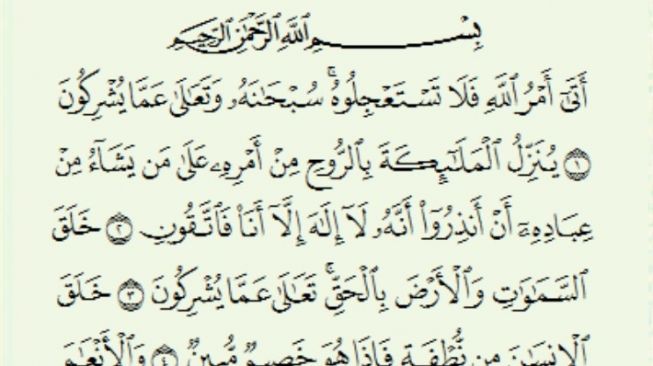 بِسْمِ اللَّهِ الرَّحْمَٰنِ الرَّحِيمِ
أَتَىٰٓ أَمْرُ ٱللَّهِ فَلَا تَسْتَعْجِلُوهُ ۚ سُبْحَٰنَهُۥ وَتَعَٰلَىٰ عَمَّا يُشْرِكُونَ
﴿١﴾ يُنَزِّلُ ٱلْمَلَٰٓئِكَةَ بِٱلرُّوحِ مِنْ أَمْرِهِۦ عَلَىٰ مَن يَشَآءُ مِنْ
عِبَادِهِۦٓ أَنْ أَنذِرُوٓا۟ أَنَّهُۥ لَآ إِلَٰهَ إِلَّآ أَنَا۠ فَٱتَّقُونِ ﴿٢﴾ خَلَقَ
ٱلسَّمَٰوَٰتِ وَٱلْأَرْضَ بِٱلْحَقِّ ۚ تَعَٰلَىٰ عَمَّا يُشْرِكُونَ ﴿٣﴾ خَلَقَ
ٱلْإِنسَٰنَ مِن نُّطْفَةٍ فَإِذَا هُوَ خَصِيمٌ مُّبِينٌ ﴿٤﴾ وَٱلْأَنْعَٰمَ